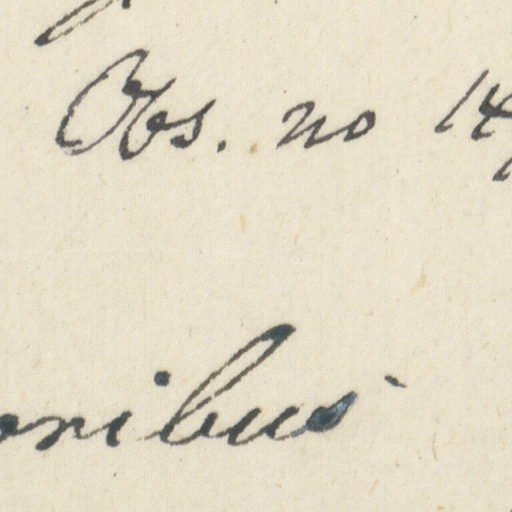 Obs. no 14
onibus